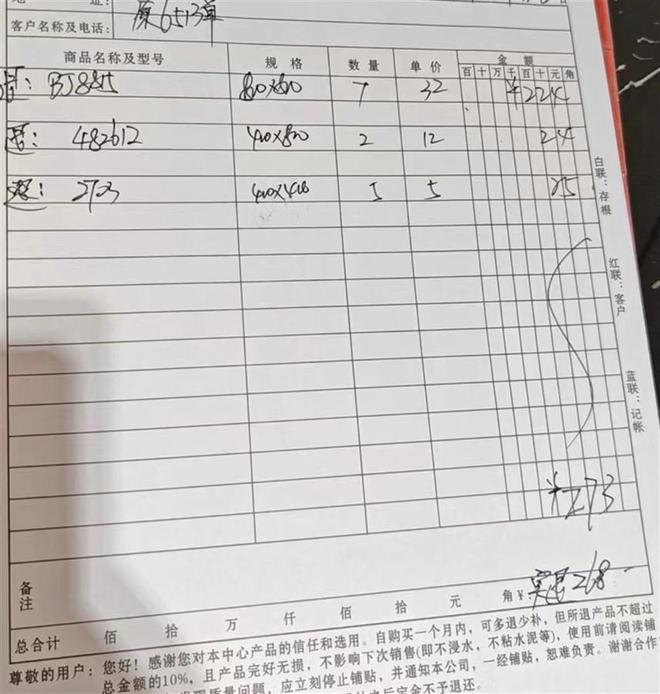 址：
客户名称及电话： 原6513单
商品名称及型号 规格 数量 单价 金额
百 十 万 千 百 十 元 角
退： BJ8815 800×800 7 32 ¥224
退： 482612 400×800 2 12 24
退： 2723 400×400 5 5 25
白联：存根 红联：客户 蓝联：记帐
¥273
备注
实退268
总合计 佰 拾 万 仟 佰 拾 元 角 ¥
尊敬的用户： 您好！感谢您对本中心产品的信任和选用。自购买一个月内，可多退少补，但所退产品不超过
总金额的10%，且产品完好无损，不影响下次销售(即不浸水，不粘水泥等)，使用前请阅读铺
质量问题，应立刻停止铺贴，并通知本公司，一经铺贴，恕难负责。谢谢合作
定金不予退还。